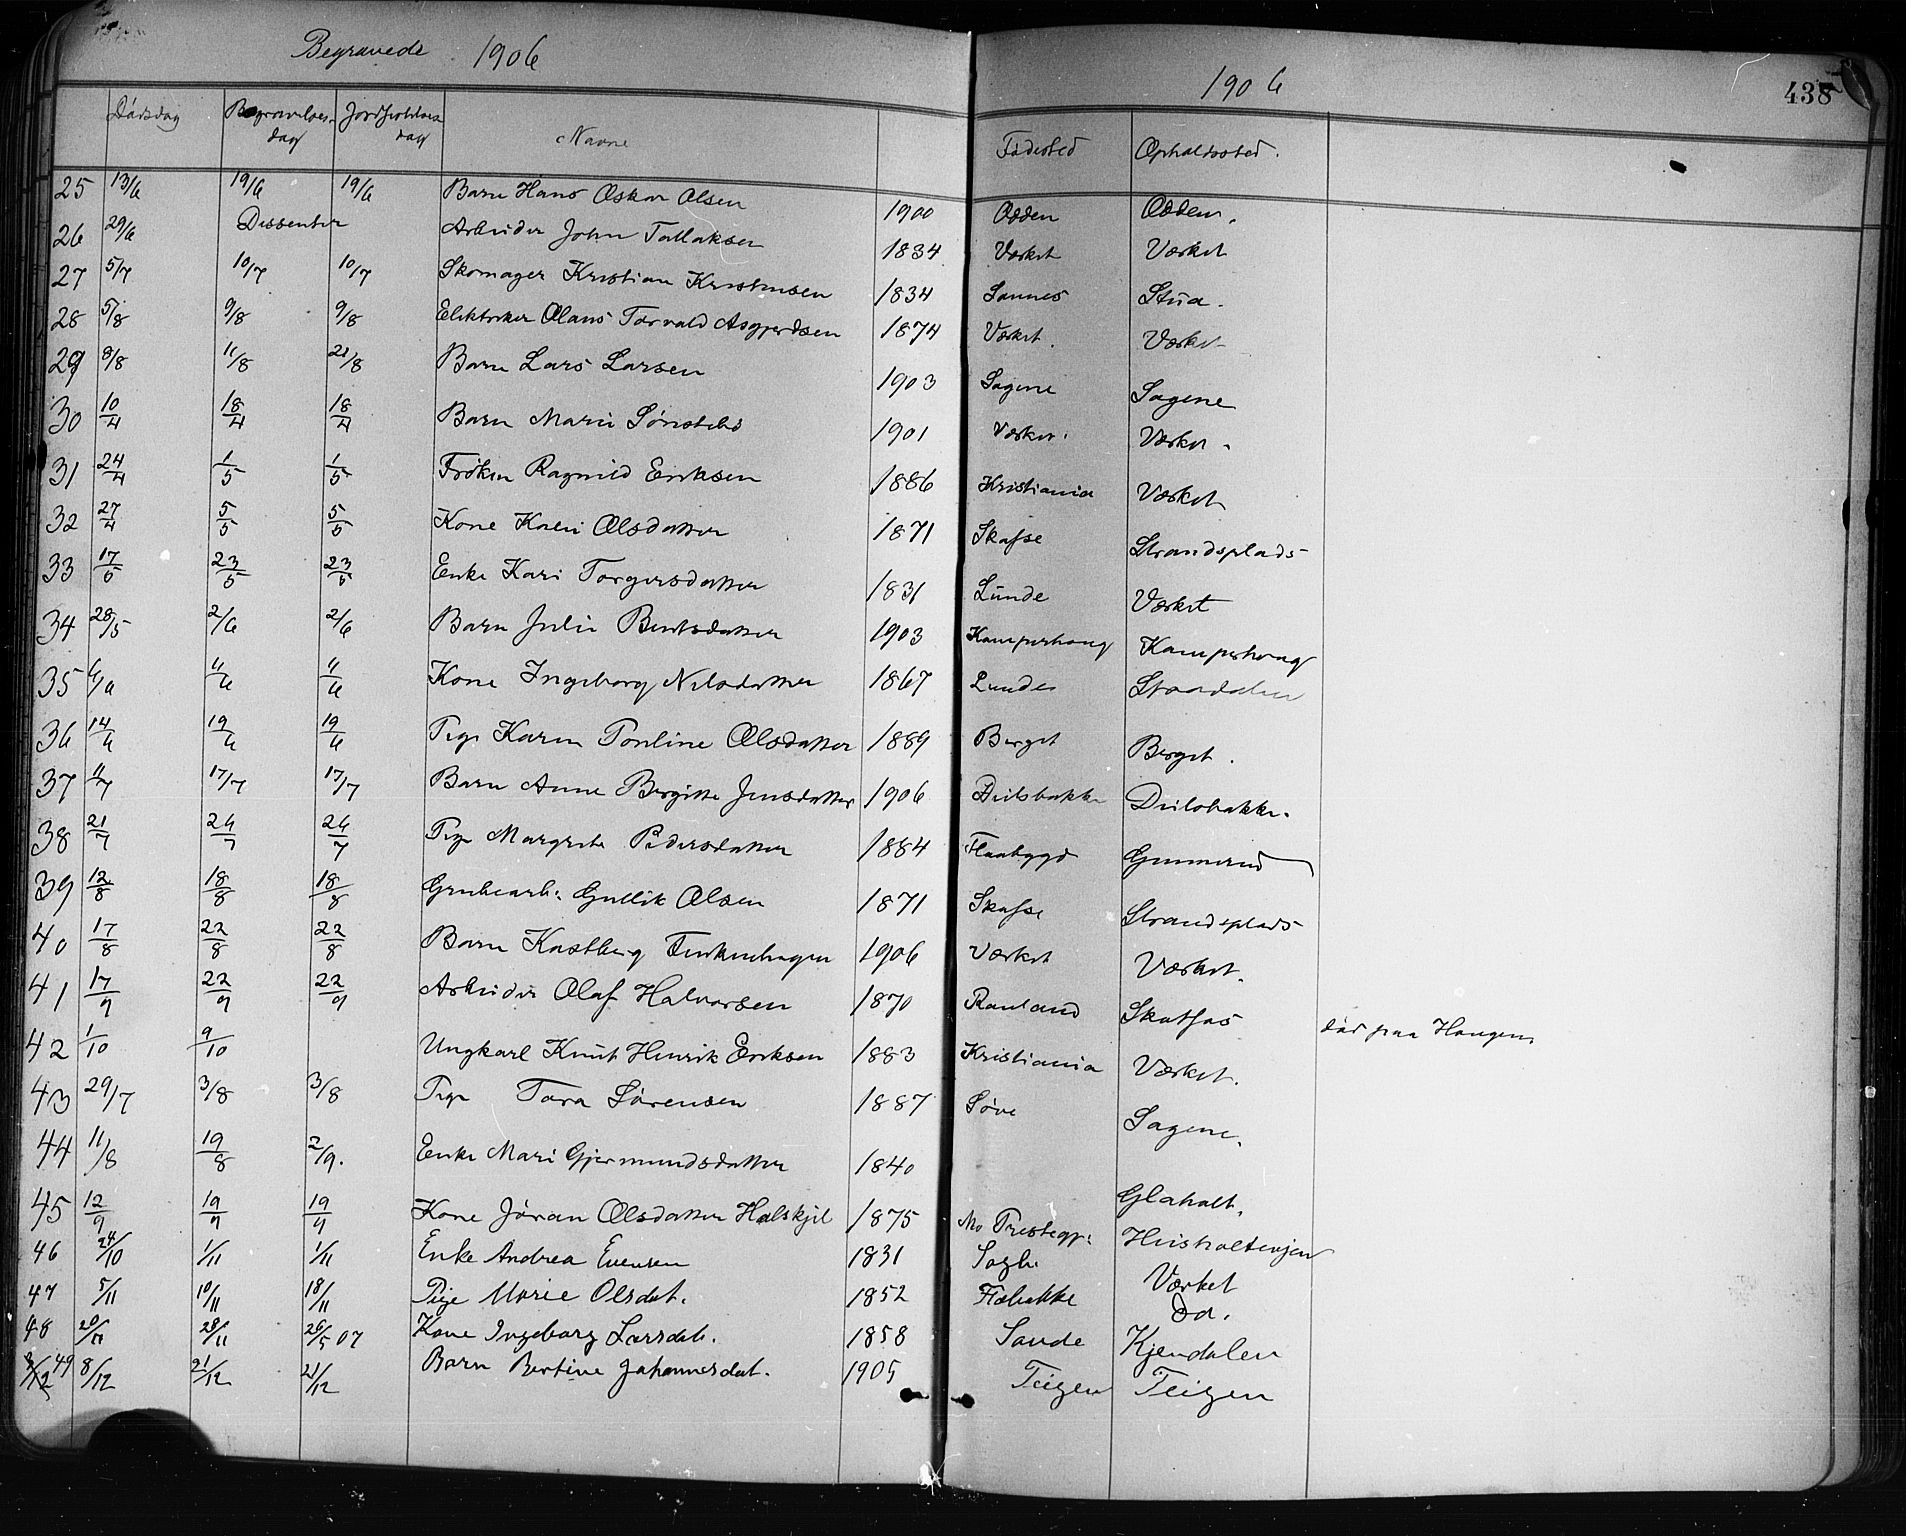 Begravede 1906
1906
438
Dödsdag Begravelsesdag Jordfæstelsesdag Navne Födested Opholdssted.
25 13/6 19/6 19/6 Barn Hans Oskar Olsen 1900 Odden Odden.
26 29/6 Dissenter Arbeider John Tallaksen 1834 Værket Værket
27 5/7 10/7 10/7 Skomager Kristian Kristensen 1834 Sannes Stua.
28 5/8 9/8 9/8 Elektriker Olaus Torvald Asgjerdsen 1874 Værket. Værket
29 8/8 11/8 21/8 Barn Lars Larsen 1903 Sagene Sagene
30 10/4 18/4 18/4 Barn Marie 1901 Værket. Værket.
31 24/4 1/5 1/5 Fröken Ragnild Eriksen 1886 Kristiania Værket
32 27/4 5/5 5/5 Kone Kari Olsdatter 1871 Skafse Strandsplads
33 17/5 23/5 23/5 Enke Kari Torgersdatter 1831 Lunde Værket
34 28/5 2/6 2/6 Barn Julie Bentsdatter 1903 Kamperhaug Kamperhaug
35 11/6 11/6 Kone Ingeborg Nilsdatter 1867 Lunde
36 14/6 19/6 19/6 Pige Karen Pouline Olsdatter 1889 Berget Berget.
37 11/7 17/7 17/7 Barn Anne Bergitte Jensdatter 1906 Deilsbakke Deilsbakke.
38 21/7 26/7 26/7 Pige Margrete Pedersdatter 1884 Flaabygd
39 12/8 18/8 18/8 Grubearb: Gullik Olsen 1871 Skafse Strandsplads
40 17/8 22/8 22/8 Barn Kastberg 1906 Værket Værket.
41 17/9 22/9 22/9 Arbeider Olaf Halvorsen 1870 Rauland Skatfos död paa Haugen
42 1/10 9/10 Ungkarl Knut Henrik Eriksen 1883 Kristiania Værket.
43 29/7 3/8 3/8 Pige Tora Sörensen 1887 Söve Sagene.
44 11/8 19/8 2/9. Enke Mari Gjermundsdatter 1840 Glaholt.
45 12/9 19/9 19/9 Kone Jöran Olsdatter Halskjil 1875 Mo Prestegj:
46 24/10 1/11 1/11 Enke Andrea Evensen 1831 Værket
47 5/11 10/11 18/11 Pige Marie Olsdat. 1852 Do.
48 20/11 28/11 26/5 07 Kone Ingeborg Larsdat. 1858 Sande Kjendalen
49 8/12 21/12 21/12 Barn Bertine Johannesdat. 1905 Teigen Teigen